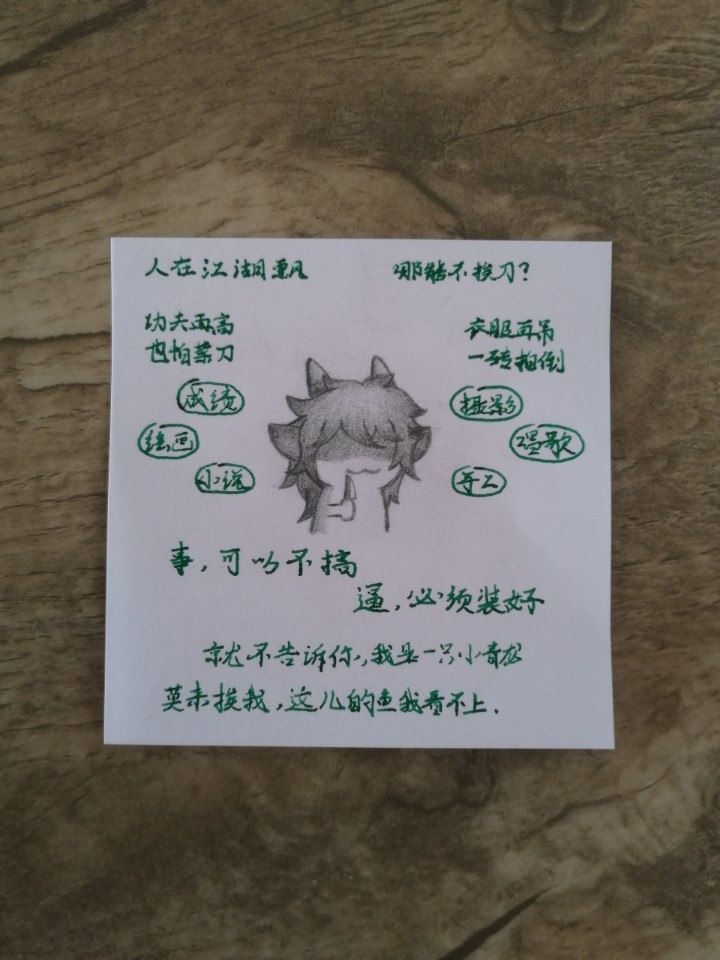 人在江湖飘
哪能不挨刀？
功夫再高
也怕菜刀
衣服再吊
一砖拍倒
成绩
绘画
小说
摄影
唱歌
手工
事，可以不搞
逼，必须装好
就不告诉你，我是一只小青龙
莫来挨我，这儿的鱼我看不上．